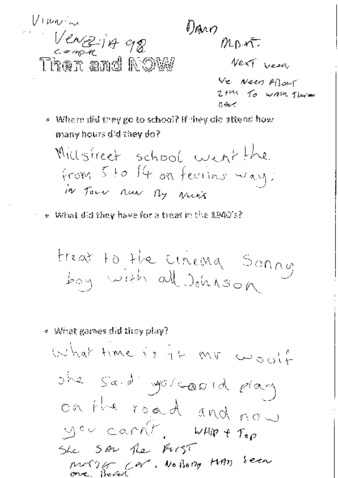 Then and NOW
Next year
We Need About
• Where did they go to school? If they did attend how
many hours did they do?
Millstreet school went the
from 5 to 14 on way.
in Town Run By Nuns
• What did they have for a treat in the 1940's?
treat to the cinema Sonny
boy with all Johnson
• What games did they play?
What time is it mr woolf
she said you could play
on the road and now
you carn't. WHIP + TOP
She SAW THE FIRST
MOTOR CAR. NOBODY HAD SEEN
one Before